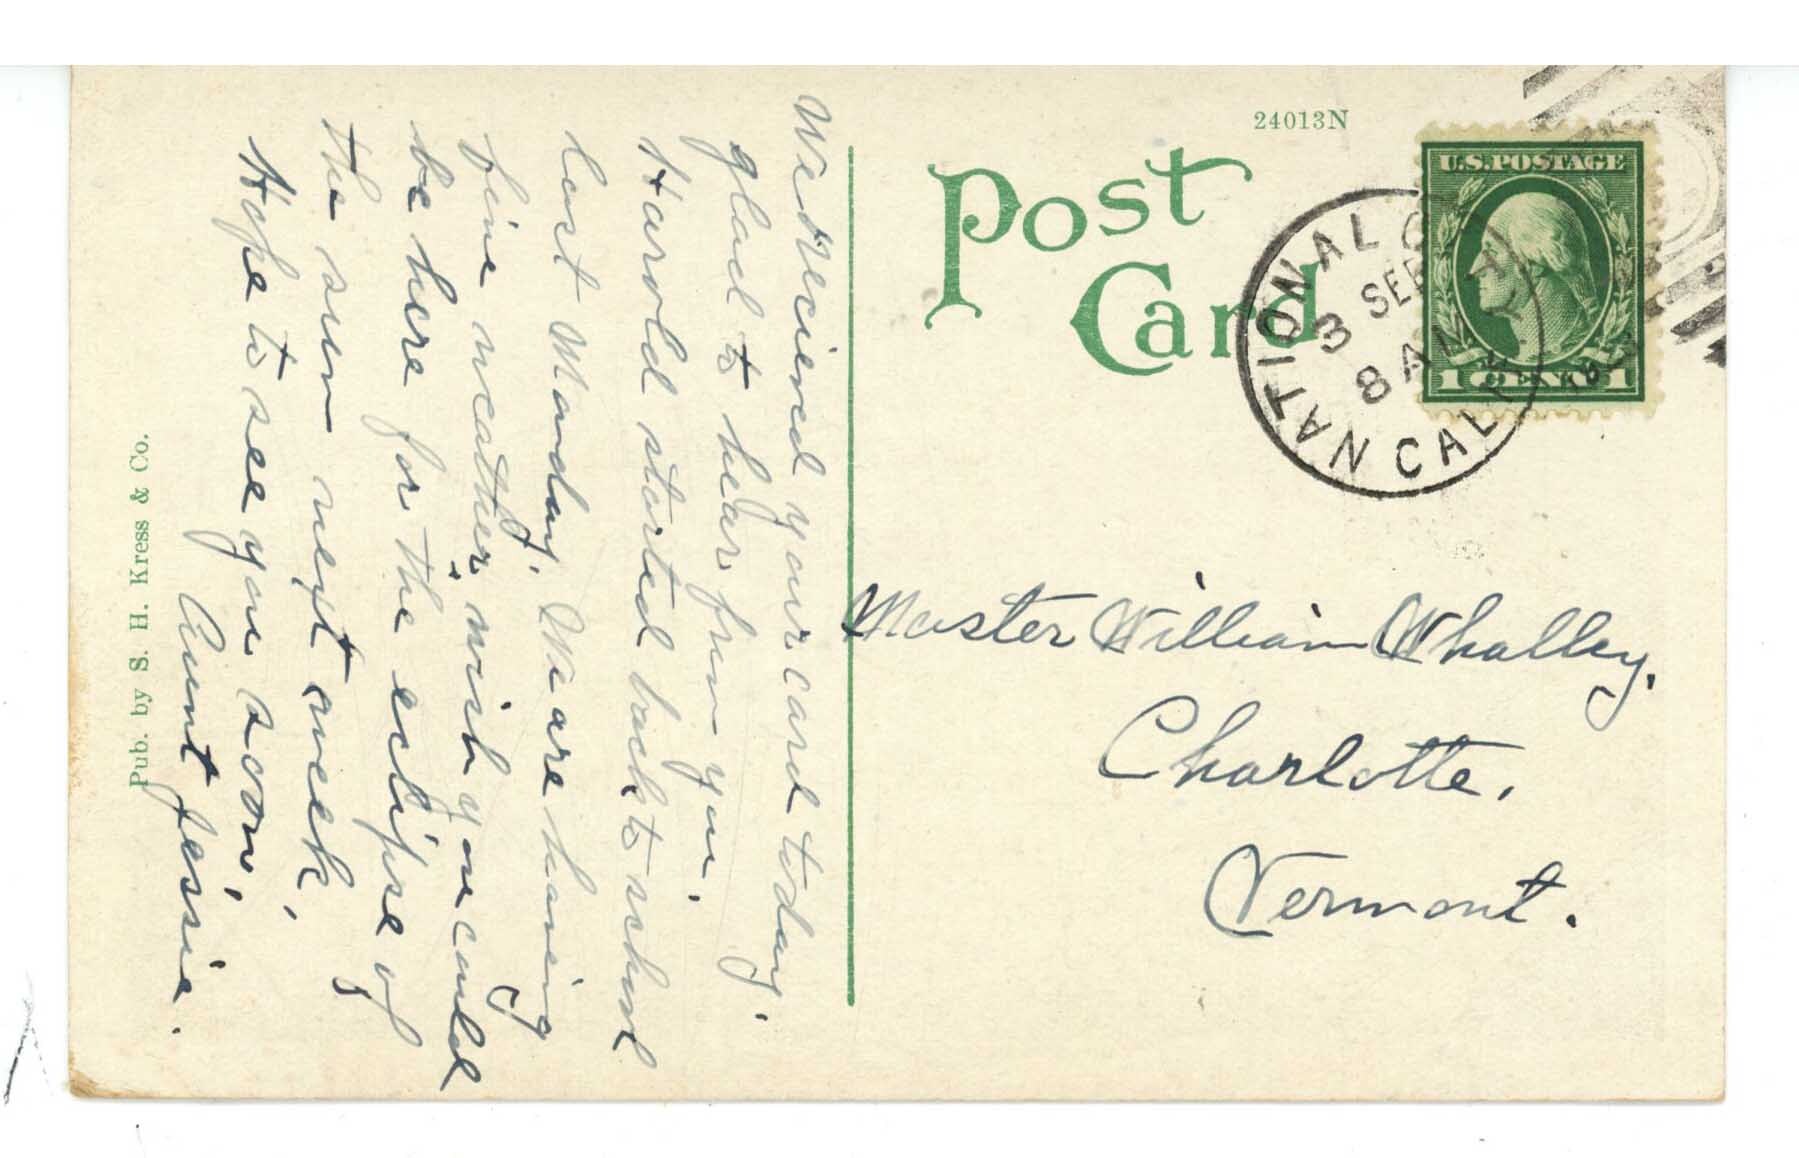 24013N
Post
Card
U.S. POSTAGE
1 CENT 1
NATIONAL C
SEP
3
8 AM
CALIF
We recieved your card today,
glad to hear from you.
Harold started back to school
last Monday. We are having
fine weather, wish you could
be here for the eclipse of
the sun next week,
Hope to see you soon,
Aunt Jessie.
Master William Whalley,
Charlotte,
Vermont.
Pub. by S. H. Kress & Co.